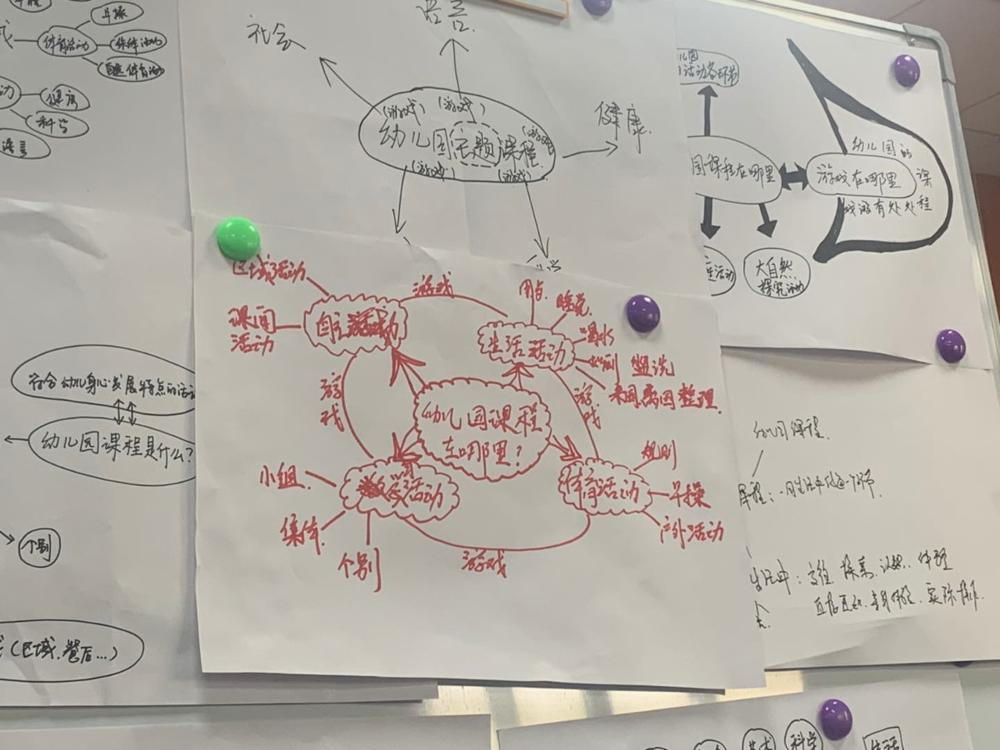 早操
体育活动
集体活动
自选体育活动
健康
科学
语言
社会
语言
健康
(游戏)
(游戏)
(游戏)
幼儿园主题课程
(游戏)
(游戏)
幼儿园
活动名环节
园课程在哪里
幼儿园的
游戏在哪里
课
戏游有处处程
大自然
探究活动
活动
区域活动
课间
活动
自主活动
游戏
生活活动
睡觉
喝水
如厕
盥洗
来园离园整理
游戏
游戏
幼儿园课程
在哪里?
小组
集体
个别
教学活动
体育活动
规则
早操
户外活动
游戏
符合幼儿身心发展特点的活动
幼儿园课程是什么?
个别
(区域、餐后…)
幼儿园课程
科学
生活